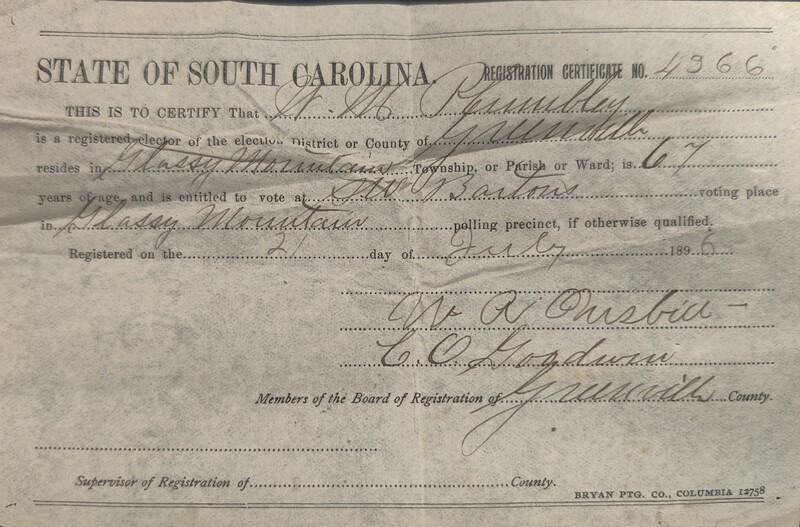 STATE OF SOUTH CAROLINA. REGISTRATION CERTIFICATE NO. 4366
THIS IS TO CERTIFY That W. M. Plumbley
is a registered elector of the election District or County of Greenville
resides in Glassy Mountain Township, or Parish or Ward; is 67
years of age, and is entitled to vote at Bartons voting place
in Glassy Mountain polling precinct, if otherwise qualified.
Registered on the 21 day of July 1896
W R
C. O. Goodwin
Members of the Board of Registration of Greenville County.
Supervisor of Registration of County.
BRYAN PTG. CO., COLUMBIA 12758